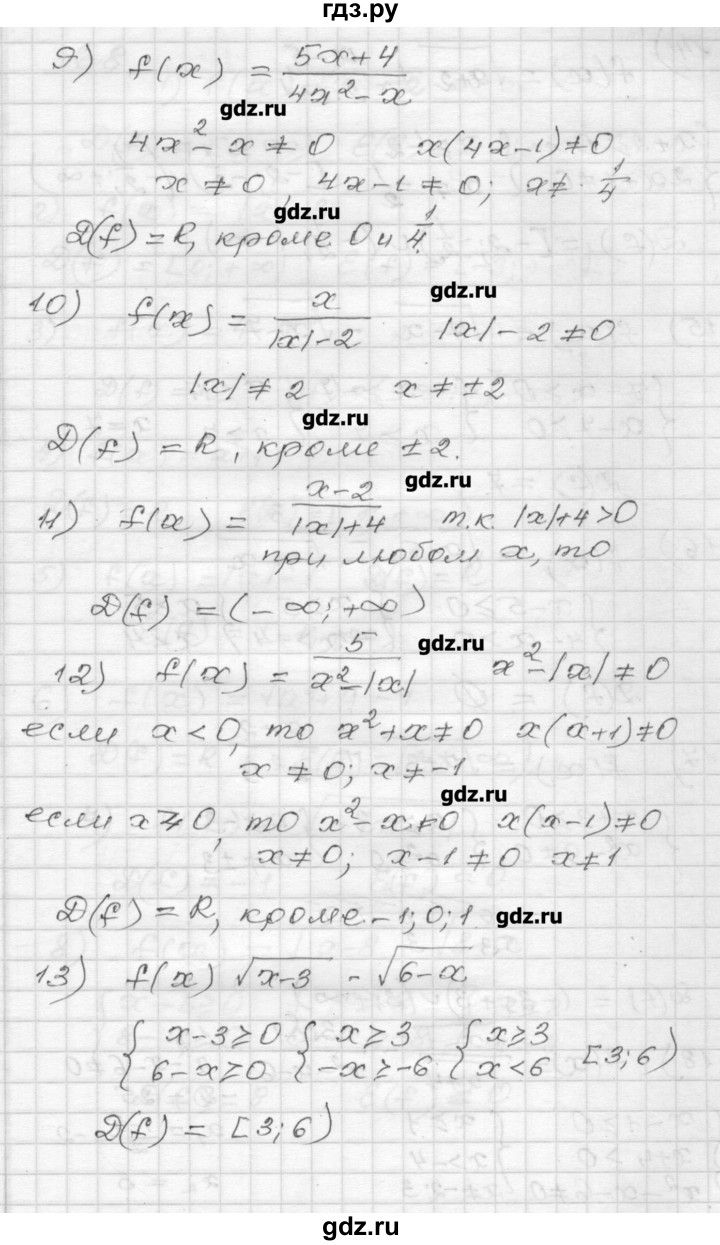 гдз.ру
9) f(x) = (5x+4)/(4x²-x)
gdz.ru
4x²-x≠0 x(4x-1)≠0
x≠0, 4x-1≠0; x≠ 1/4
gdz.ru
D(f)=R, кроме 0 и 1/4.
gdz.ru
10) f(x) = x/(|x|-2) |x|-2≠0
|x|≠2 x≠±2
gdz.ru
D(f)=R, кроме ±2.
gdz.ru
11) f(x) = (x-2)/(|x|+4) т.к. |x|+4>0
при любом x, то
D(f)=(-∞;+∞)
gdz.ru
12) f(x) = 5/(x²-|x|) x²-|x|≠0
если x<0, то x²+x≠0 x(x+1)≠0
x≠0; x≠-1
gdz.ru
если x⩾0, то x²-x≠0 x(x-1)≠0
x≠0; x-1≠0 x≠1
D(f)=R, кроме -1; 0; 1
gdz.ru
13) f(x) √(x-3) - √(6-x)
{x-3⩾0 {x⩾3 {x⩾3
{6-x⩾0 {-x⩾-6 {x<6 [3;6)
D(f) = [3;6)
gdz.ru